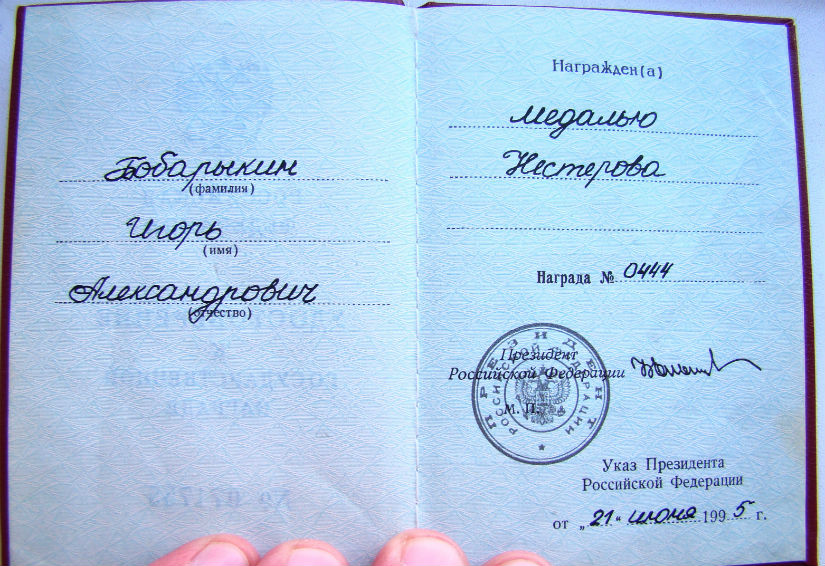 Бобарыкин
(фамилия)
Игорь
(имя)
Александрович
(отчество)
Награжден(а)
медалью
Нестерова
Награда № 0444
ПРЕЗИДЕНТ
РОССИЙСКОЙ ФЕДЕРАЦИИ
Президент
Российской Федерации
М. П.
Указ Президента
Российской Федерации
от „21“ июня 1995 г.